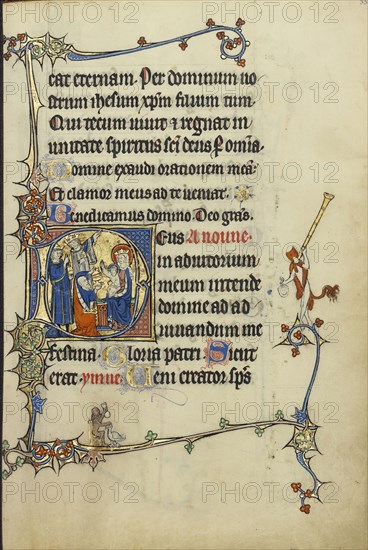 cat eternam. Per dominum no
strum ihesum xp̃m filium tuum.
Qui tecum uiuit ⁊ regnat in
unitate spiritus sc̃i deus P omĩa
Domine exaudi orationem meã.
Et clamor meus ad te ueniat.
Benedicamus domino. Deo grãs.
Deus A noune.
in adiutorium
meum intende
domine ad ad
iuuandum me
festina. Gloria patri. Sicut
erat. ymne. Ueni creator sp̃s
PHOTO 12